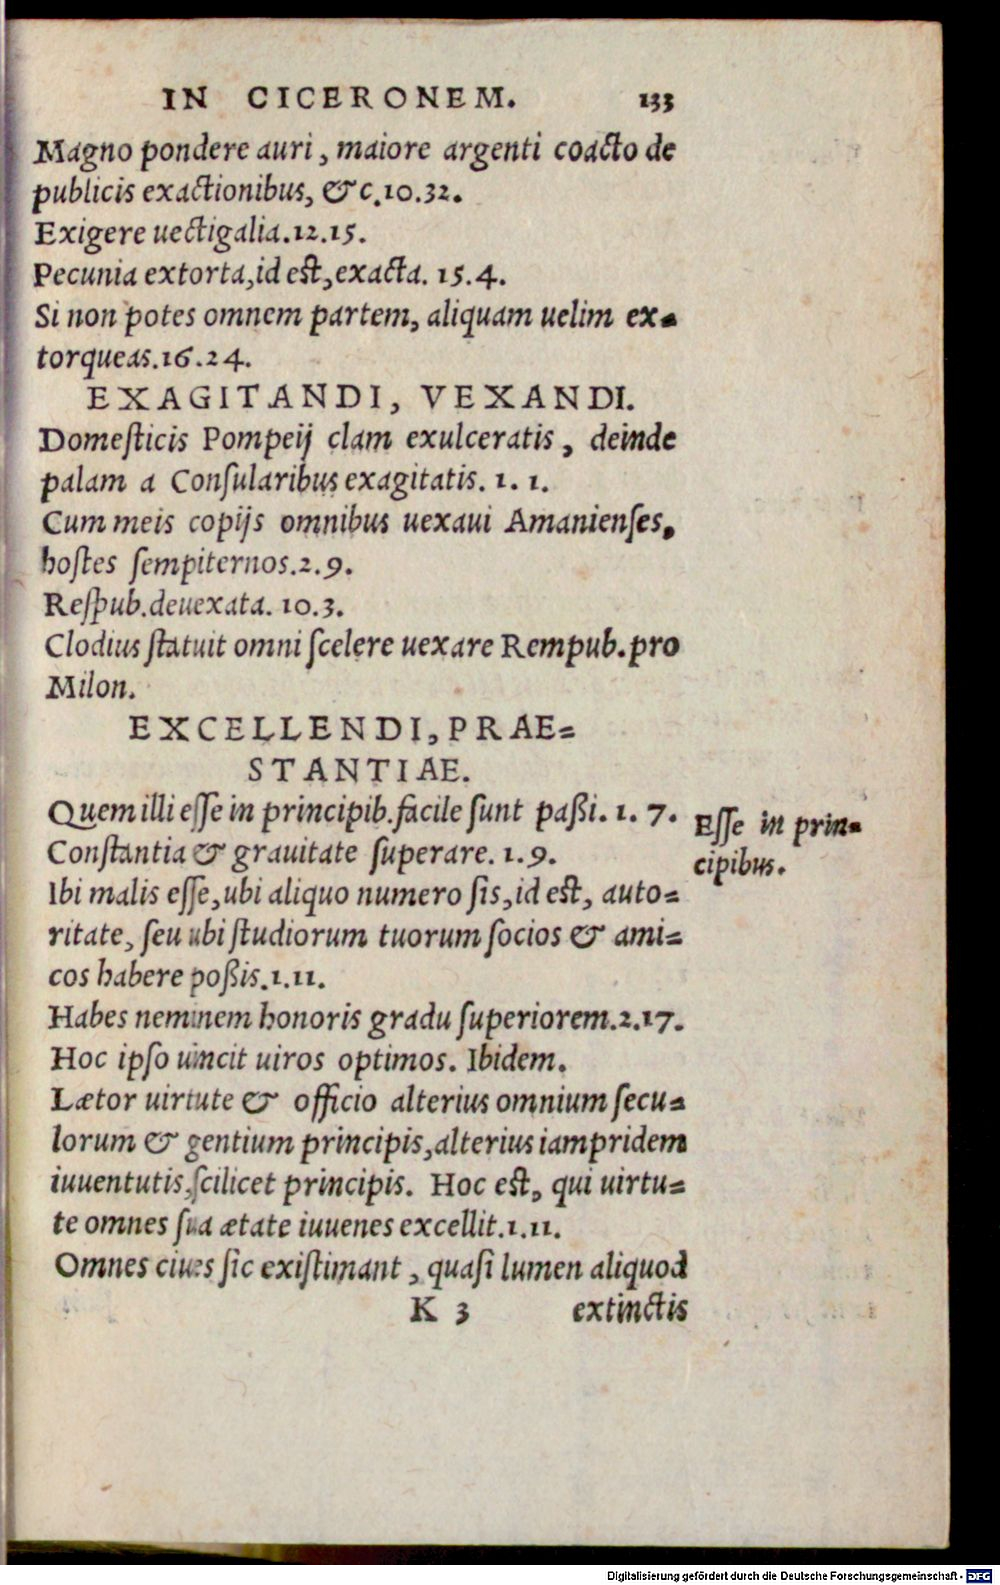 IN CICERONEM. 133
Magno pondere auri, maiore argenti coacto de
publicis exactionibus, &c.10.32.
Exigere uectigalia.12.15.
Pecunia extorta,id est,exacta. 15.4.
Si non potes omnem partem, aliquam uelim ex=
torqueas.16.24.
EXAGITANDI, VEXANDI.
Domeſticis Pompeij clam exulceratis, deinde
palam a Conſularibus exagitatis. 1. 1.
Cum meis copijs omnibus uexaui Amanienſes,
hoſtes ſempiternos.2.9.
Reſpub.deuexata. 10.3.
Clodius ſtatuit omni ſcelere uexare Rempub.pro
Milon.
EXCELLENDI, PRAE=
STANTIAE.
Quem illi eſſe in principib.facile ſunt paßi. 1. 7.
Conſtantia & grauitate ſuperare. 1.9.
Eſſe in prin=
cipibus.
Ibi malis eſſe,ubi aliquo numero ſis,id est, auto=
ritate, ſeu ubi ſtudiorum tuorum ſocios & ami=
cos habere poßis.1.11.
Habes neminem honoris gradu ſuperiorem.2.17.
Hoc ipſo uincit uiros optimos. Ibidem.
Lætor uirtute & officio alterius omnium ſecu=
lorum & gentium principis,alterius iampridem
iuuentutis,ſcilicet principis. Hoc est, qui uirtu=
te omnes ſua ætate iuuenes excellit.1.11.
Omnes ciues ſic exiſtimant, quaſi lumen aliquod
K 3 extinctis
Digitalisierung gefördert durch die Deutsche Forschungsgemeinschaft - DFG